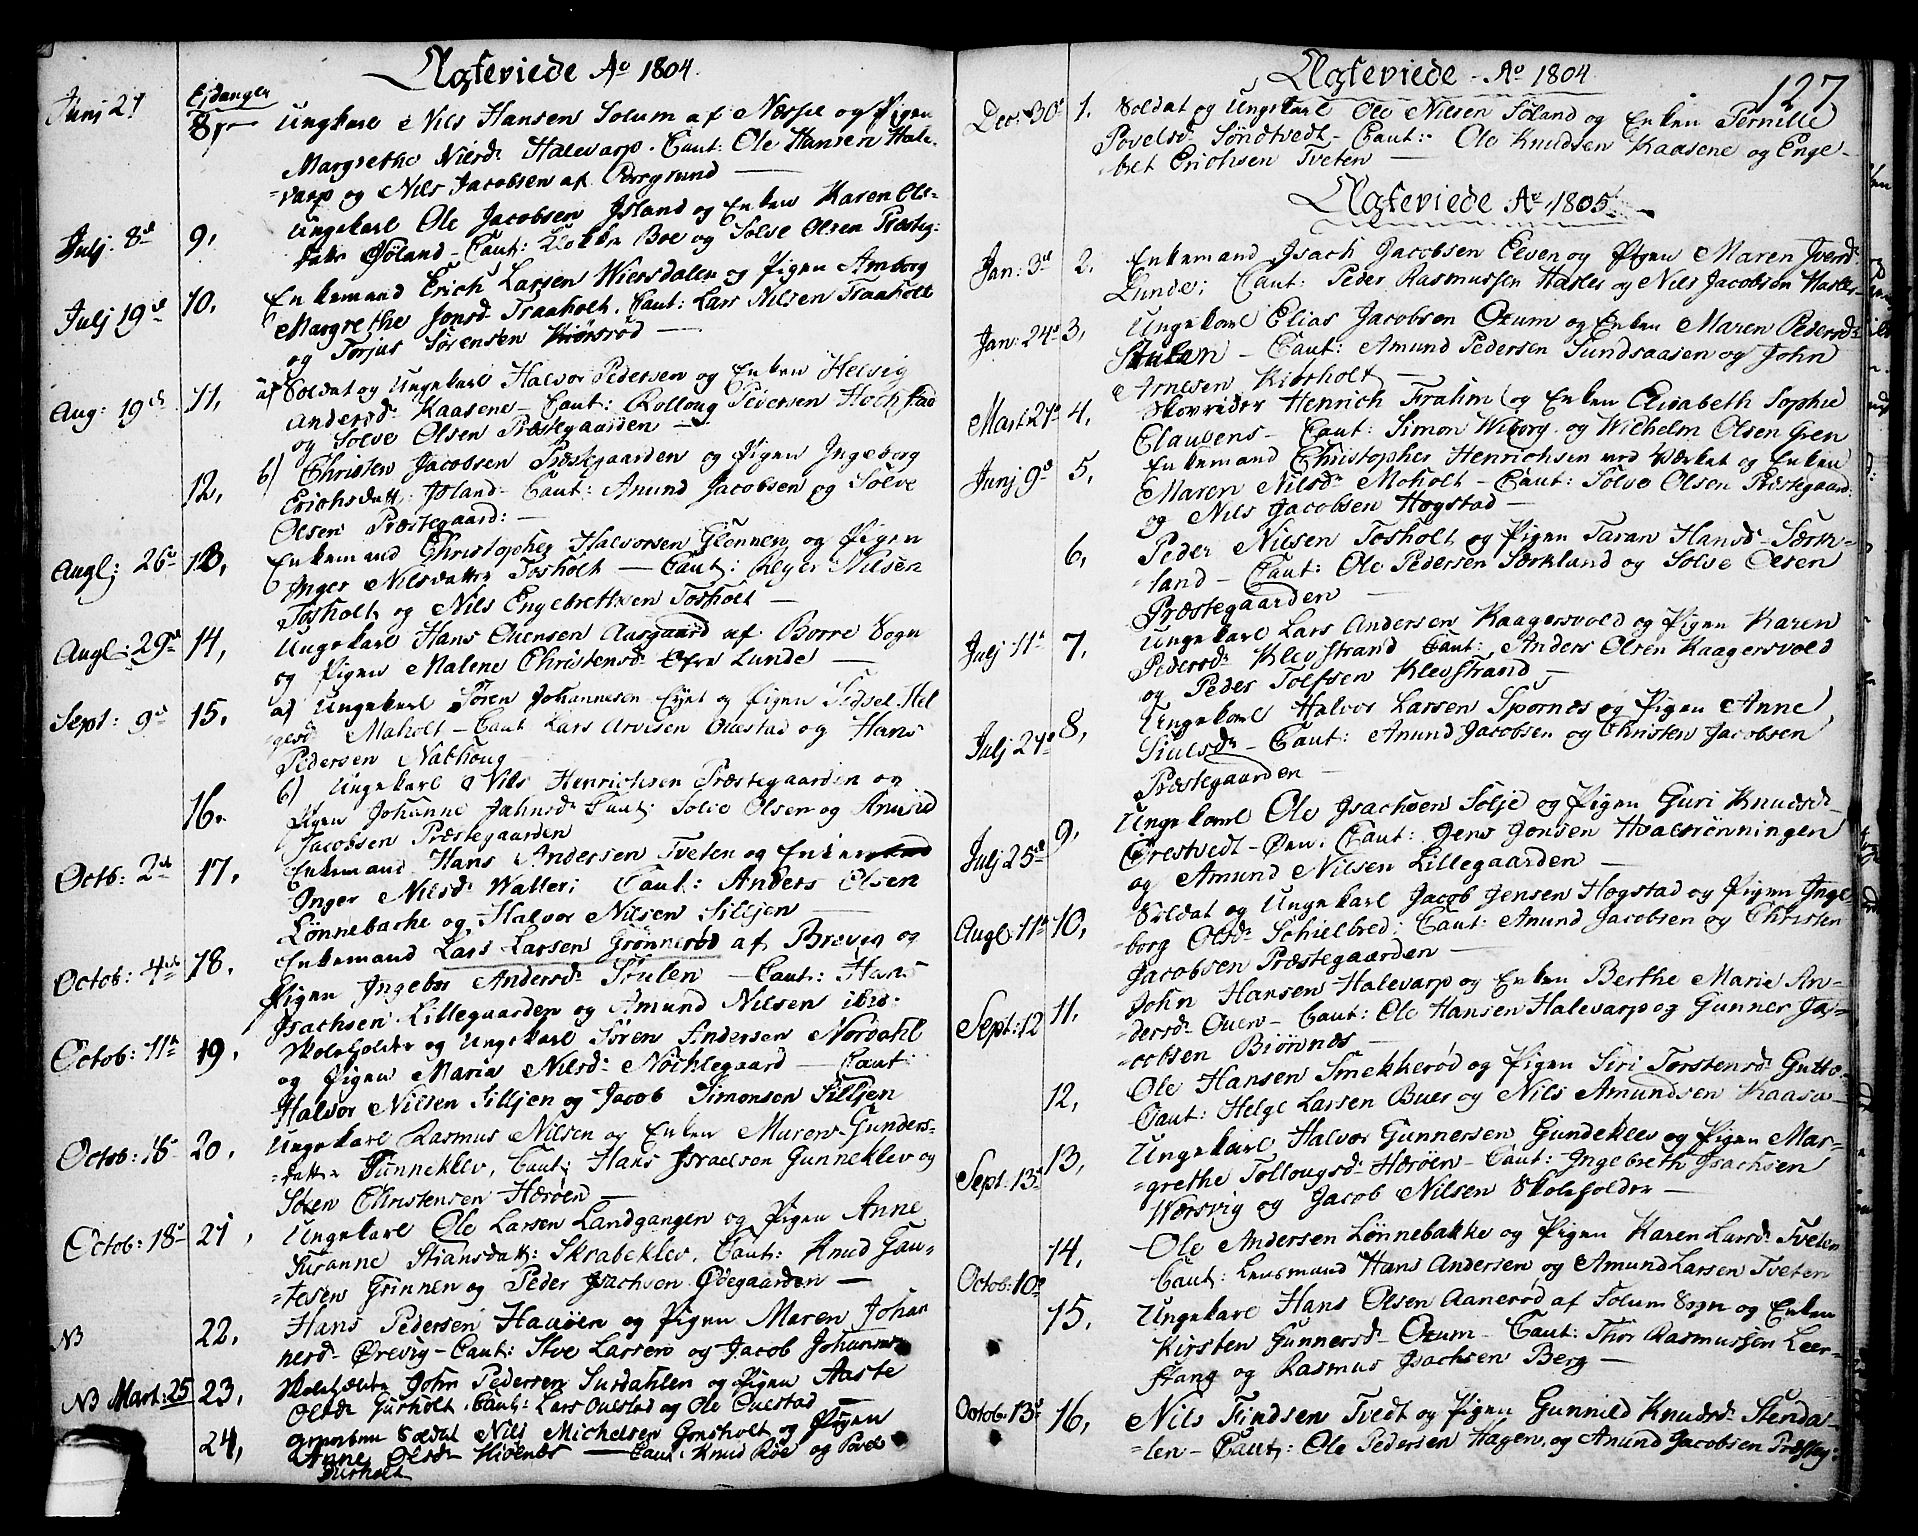 Ægteviede Aº 1804.
Eidanger
Junj 27 8, Ungkarl Nils Hansen Solum af Næsse og Pigen
Margrethe Nielsd: Halevarp. Caut: Ole Hansen Hale-
varp og Nils Jacobsen af Porsgrund
Julj 8d 9, Ungekarl Ole Jacobsen Island og Enken Karen Ols-
datter Øland - Caut: Boe og Solve Olsen Præsteg:
Julj 19d 10, Enkemand Erich Larsen Wiersdalen og Pigen Amborg
Margrethe Jonsd: Traaholt. Caut: Lars Nilsen Traaholt
og Torjus Sørensen Kiørsrød
Aug: 19d 11, a) Soldat og Ungekarl Halvor Pedersen og Enken Helvig
Andersd: Kaasene - Caut: Rolloug Pedersen Hochstad
og Solve Olsen Præstegaarden
12, b) Christen Jacobsen Præstegaarden og Pigen Ingeborg
Erichsdatt: Island - Caut: Anund Jacobsen og Solve
Olsen Præstegaard:
Augl: 26d 13, Enkemand Christopher Halvorsen Glennen og Pigen
Inger Nilsdatter Tosholt - Caut: Reyer Nilsen
Tosholt og Nils Engebrettsen Tosholt
Augl: 29d 14, Ungekarl Hans Evensen Aasgaard af Borre Sogn
og Pigen Malene Christensd: Øfre Lunde
Sept: 9d 15, a) Ungekarl Søren Johannesen og Pigen Sidsel Hel-
gesd: Maholt - Caut Lars Arvesen Oulstad og Hans
Pedersen Nathoug
16. b) Ungekarl Nils Henrichsen Præstegaarden og
Pigen Johanne Jahnsd: Caut: Solve Olsen og Anund
Jacobsen Præstegaarden
Octb: 2d 17, Enkemand Hans Andersen Tveten og Enken
Inger Nilsd: Waller; Caut: Anders Olsen
Lønnebache og Halvor Nilsen Silljen
Octob: 4de 18. Enkemand Lars Larsen Grønnerød af Brevig og
Pigen Ingebor Andersd: Stulen - Caut: Hans
Isachsen Lillegaarden og Amund Nilsen ibid:
Octob: 11te 19. Skoleholder og Ungekarl Sören Andersen Nordahl
og Pigen Maria Nilsd: Nöchlegaard - Caut:
Halvor Nilsen Silljen og Jacob Simonsen Silljen
Octob: 16d 20. Ungekarl Rasmus Nilsen og Enken Maren Gunders-
datter Gunneklev, Caut: Hans Israelsen Gunneklev og
Søren Christensen Herøen
Octob: 18d 21, Ungekarl Ole Larsen Landgangen og Pigen Anne
Susanne Stiansdatt: Skrabeklev, Caut: Knud Gau-
tesen Grinnen og Peder Isachsen Ødegaarden
NB 22, Hans Pedersen Hauöen og Pigen Maren Johan-
nesd: Ørevig - Caut: Ive Larsen og Jacob Johannes
NB Mart: 25 23, Skoleholder John Pedersen Surdahlen og Pigen Aaste
Olsd: Gusholt. Caut: Lars Ouestad og Ole Ouestad
24, Soldat Nils Michelsen Gonsholt og Pigen
Anne Olsd: Hvidenes - Caut: Knud Röe og Povel
Gusholt
Ægteviede - Aº 1804. 127
Dec: 30d 1. Soldat og Ungekarl Ole Nilsen Søland og Enken Pernille
Povelsd: Søndtvedt - Caut: Ole Knudsen Kaasene og Enge-
bret Erichsen Tveten
Ægteviede Aº 1805
Jan: 3d 2. Enkemand Isach Jacobsen Elven og Pigen Maren Iversd:
Lunde; Caut: Peder Rasmussen Hasler og Nils Jacobsen Hasler
Jan: 24d 3, Ungekarl Elias Jacobsen Ozum og Enken Maren Pedersd:
Stulen - Caut: Amund Pedersen Sundsaasen og John
Arnesen Kiörholt
Mart 27d 4, Skovrider Henrich Frahm og Enken Elisabeth Sophie
Clausens - Caut: Simon Wiborg og Wilhelm Olsen Gren
Junj 9d 5, Enkemand Christopher Henrichsen ved Værket og Enken
Maren Nilsd: Moholt - Caut: Solve Olsen Præstegaard:
og Nils Jacobsen Hogstad
6, Peder Nilsen Tosholt og Pigen Taran Hansd: Særk-
land - Caut: Ole Pedersen Særkland og Solve Olsen
Præstegaarden
Julj 11d 7, Ungekarl Lars Andersen Kaagersvold og Pigen Karen
Pedersd: Klevstrand Caut: Anders Olsen Kaagersvold
og Peder Tolfsen Klevstrand
Julj 27d 8, Ungekarl Halvor Larsen Spornæs og Pigen Anne
Siulsd: - Caut: Anund Jacobsen og Christen Jacobsen
Præstegaarden
Julj 25d 9, Ungekarl Ole Isachsen Solje og Pigen Guri Knudsd:
Ørestvedt - Øen; Caut: Jens Jonsen Hvalsrönningen
og Amund Nilsen Lillegaarden
Augl: 11te 10, Soldat og Ungekarl Jacob Jensen Hogstad og Pigen Inge-
borg Olsd: Schielbred; Caut: Anund Jacobsen og Christen
Jacobsen Præstegaarden
Sept: 12 11, John Hansen Halevarp og Enken Berthe Marie An-
dersd: Ouen - Caut: Ole Hansen Halevarp og Gunner Ja-
cobsen Biörnnes
12, Ole Hansen Smekkerød og Pigen Siri Torstensd: Gutto-
Caut: Helge Larsen Buer og Nils Amundsen Kaasa
Sept: 13d 13, Ungekarl Halvor Gunnersen Gundeklev og Pigen Mar-
grethe Tollougsd: Herøen - Caut: Ingebreth Isachsen
Wersvig og Jacob Nilsen Skoleholder
Octob: 10d 14, Ole Andersen Lønnebakke og Pigen Karen Larsd: Tveten
Caut: Lensmand Hans Andersen og Amund Larsen Tveten
15, Ungekarl Hans Olsen Aanerød af Solum Sogn og Enken
Kirsten Gunnersd: Ozum - Caut: Thor Rasmussen Leer-
stang og Rasmus Isachsen Berg
Octob: 13d 16, Nils Findsen Tvedt og Pigen Gunnild Knudsd: Stenda-
len - Caut: Ole Pedersen Hagen og Anund Jacobsen Præsteg: